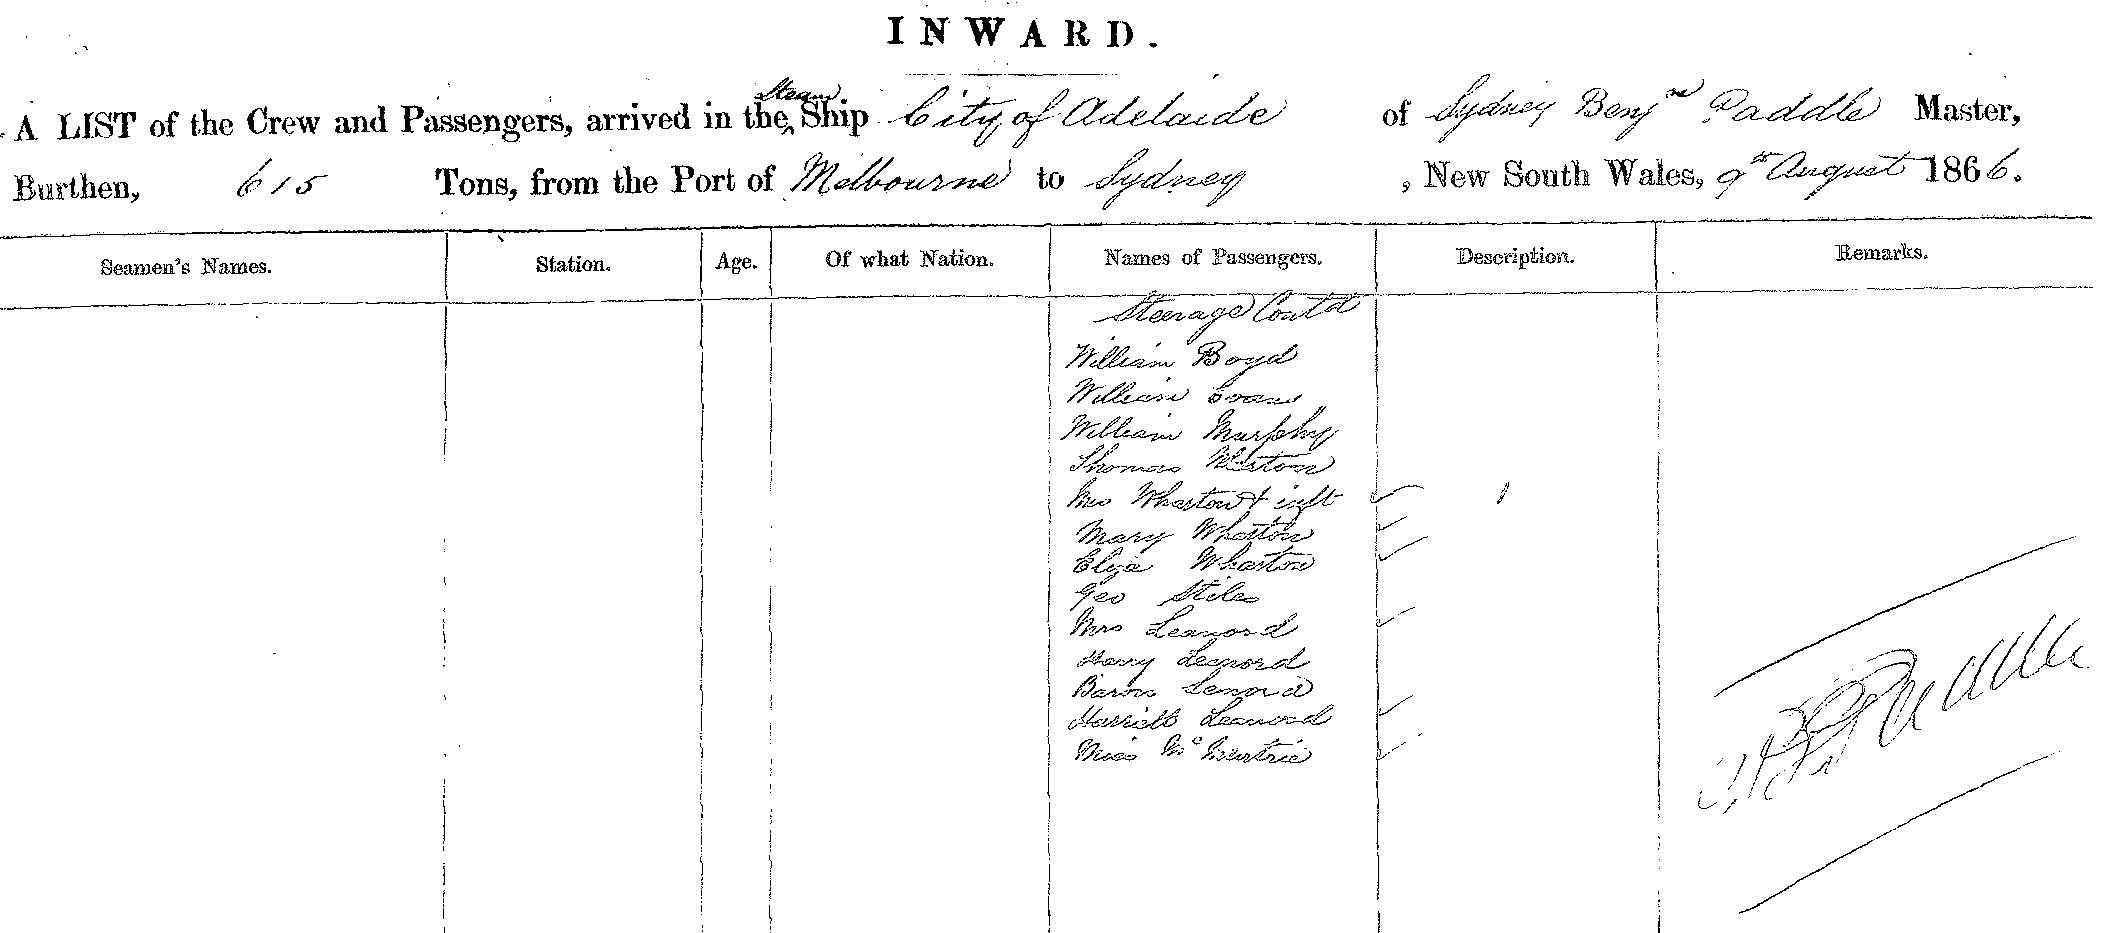 INWARD.
A LIST of the Crew and Passengers, arrived in the Steam Ship City of Adelaide of Sydney Benjn Paddle Master,
Burthen, 615 Tons, from the Port of Melbourne to Sydney, New South Wales, 9th August 1866.
Seamen's Names. Station. Age. Of what Nation. Names of Passengers. Description. Remarks.
Steerage Contd
William Boyd
William Evans
William Murphy
Thomas
Mrs Wharton + inft
Mary Wharton
Eliza Wharton
Geo Stiles
Mrs Leanord
Harry Leanord
Lenord
Harriett Leanord
Miss
Paddle